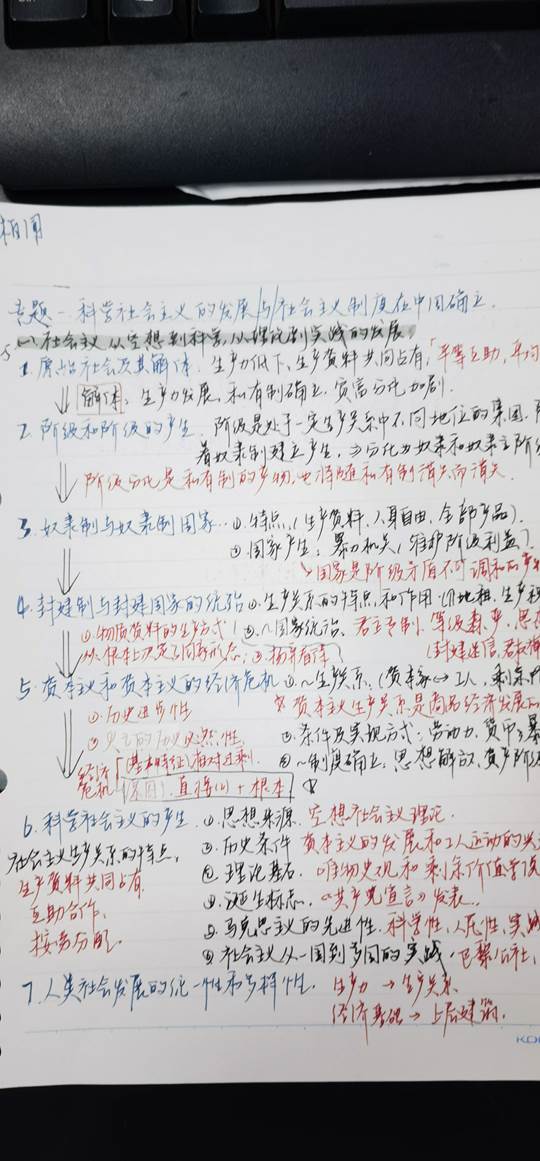 专题一 科学社会主义的发展与社会主义制度在中国确立.
(一)社会主义从空想到科学,从理论到实践的发展.
1. 原始社会及其解体. 生产力低下、生产资料共同占有,「平等互助、平均
解体: 生产力发展、私有制确立、贫富分化加剧.
2. 阶级和阶级的产生. 阶级是处于一定生产关系中不同地位的集团.
着奴隶制建立产生, ⇒分化为奴隶和奴隶主阶
阶级分化是私有制的产物,也将随私有制消失而消失.
3. 奴隶制与奴隶制国家. ①.特点.(生产资料、人身自由、全部产品).
②国家产生: 暴力机关(维护阶级利益).
国家是阶级矛盾不可调和的产
4. 封建制与封建国家的统治 ①.生产关系的特点和作用. 地租、生产
①.物质资料的生产方式 ②.~国家统治. 君主专制、等级森严、思
从根本上决定了国家形态.
5. 资本主义和资本主义的经济危机 ①.~生产关系.(资本家↔工人,剩余价
资本主义生产关系是商品经济发展的
①历史进步性
③.条件及实现方式: 劳动力、货币、暴
④~制度确立: 思想解放、资产阶级
经济危机「(基本特征)相对过剩.
(原因). 直接(2) + 根本
6. 科学社会主义的产生 ①思想来源. 空想社会主义理论.
社会主义生产关系的特点. ②.历史条件 资本主义的发展和工人运动的兴
生产资料共同占有. 理论基石. 唯物史观和剩余价值学说
互助合作. 诞生标志. 《共产党宣言》发表.
按劳分配. 马克思主义的先进性. 科学性、人民性、实践
社会主义从一国到多国的实践. 巴黎公社、
7. 人类社会发展的统一性和多样性. 生产力 → 生产关系.
经济基础 → 上层建筑.